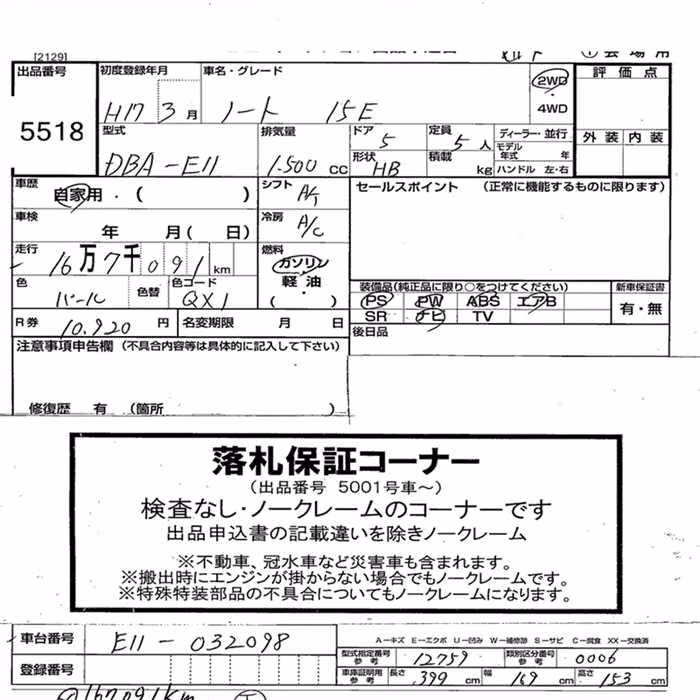 [2129]
出品番号 初度登録年月 車名・グレード 2WD 評価点
H17 3月 ノート 15E 4WD
5518 型式 排気量 ドア 定員 ディーラー・並行 外装 内装
DBA-E11 1.500cc 5 5人 モデル年式 年
形状 HB 積載 kg ハンドル 左・右
車歴 自家用・( ) シフト A/T セールスポイント (正常に機能するものに限ります)
車検 年 月( 日) 冷房 A/C
走行 16万7千091km 燃料 ガソリン
軽油
・( )
色 パール 色替 色コード QX1 装備品(純正品に限り○をつけてください) 新車保証書
PS PW ABS エアB 有・無
SR ナビ TV
R券 10.920円 名変期限 月 日 後日品
注意事項申告欄 (不具合内容等は具体的に記入して下さい)
修復歴 有 (箇所 )
落札保証コーナー
(出品番号 5001号車〜)
検査なし・ノークレームのコーナーです
出品申込書の記載違いを除きノークレーム
※不動車、冠水車など災害車も含まれます。
※搬出時にエンジンが掛からない場合でもノークレームです。
※特殊特装部品の不具合についてもノークレームになります。
車台番号 E11-032098 A－キズ E－エクボ U－凹み W－補修跡 S－サビ C－腐食 XX－交換済
型式指定番号 参考 12759 類別区分番号 参考 0006
登録番号 車庫証明用 参考 長さ 399 cm 幅 169 cm 高さ 153 cm
167091km